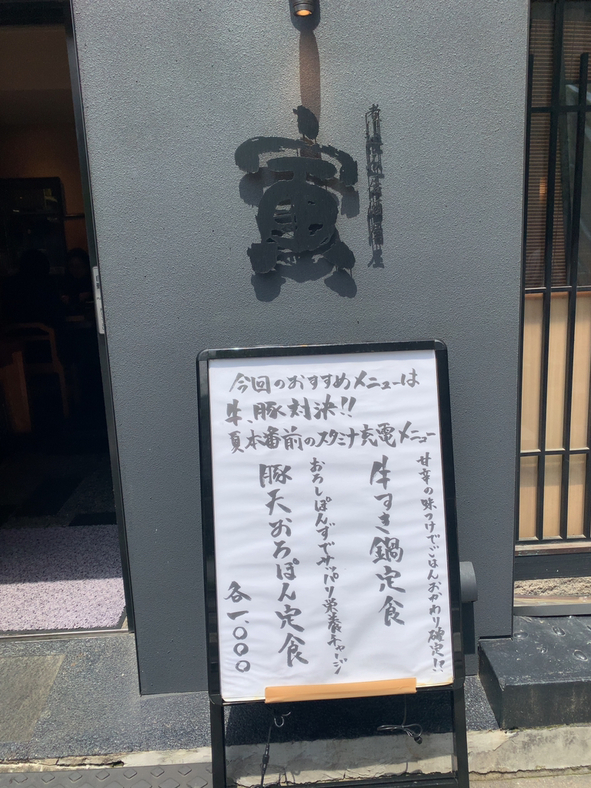 寅
今回のおすすめメニューは
牛、豚対決!!
夏本番前のスタミナ充電メニュー
甘辛の味つけでごはんおかわり確定!?
牛すき鍋定食
おろしぽんずでサッパリ栄養チャージ
豚天おろぽん定食
各一、〇〇〇